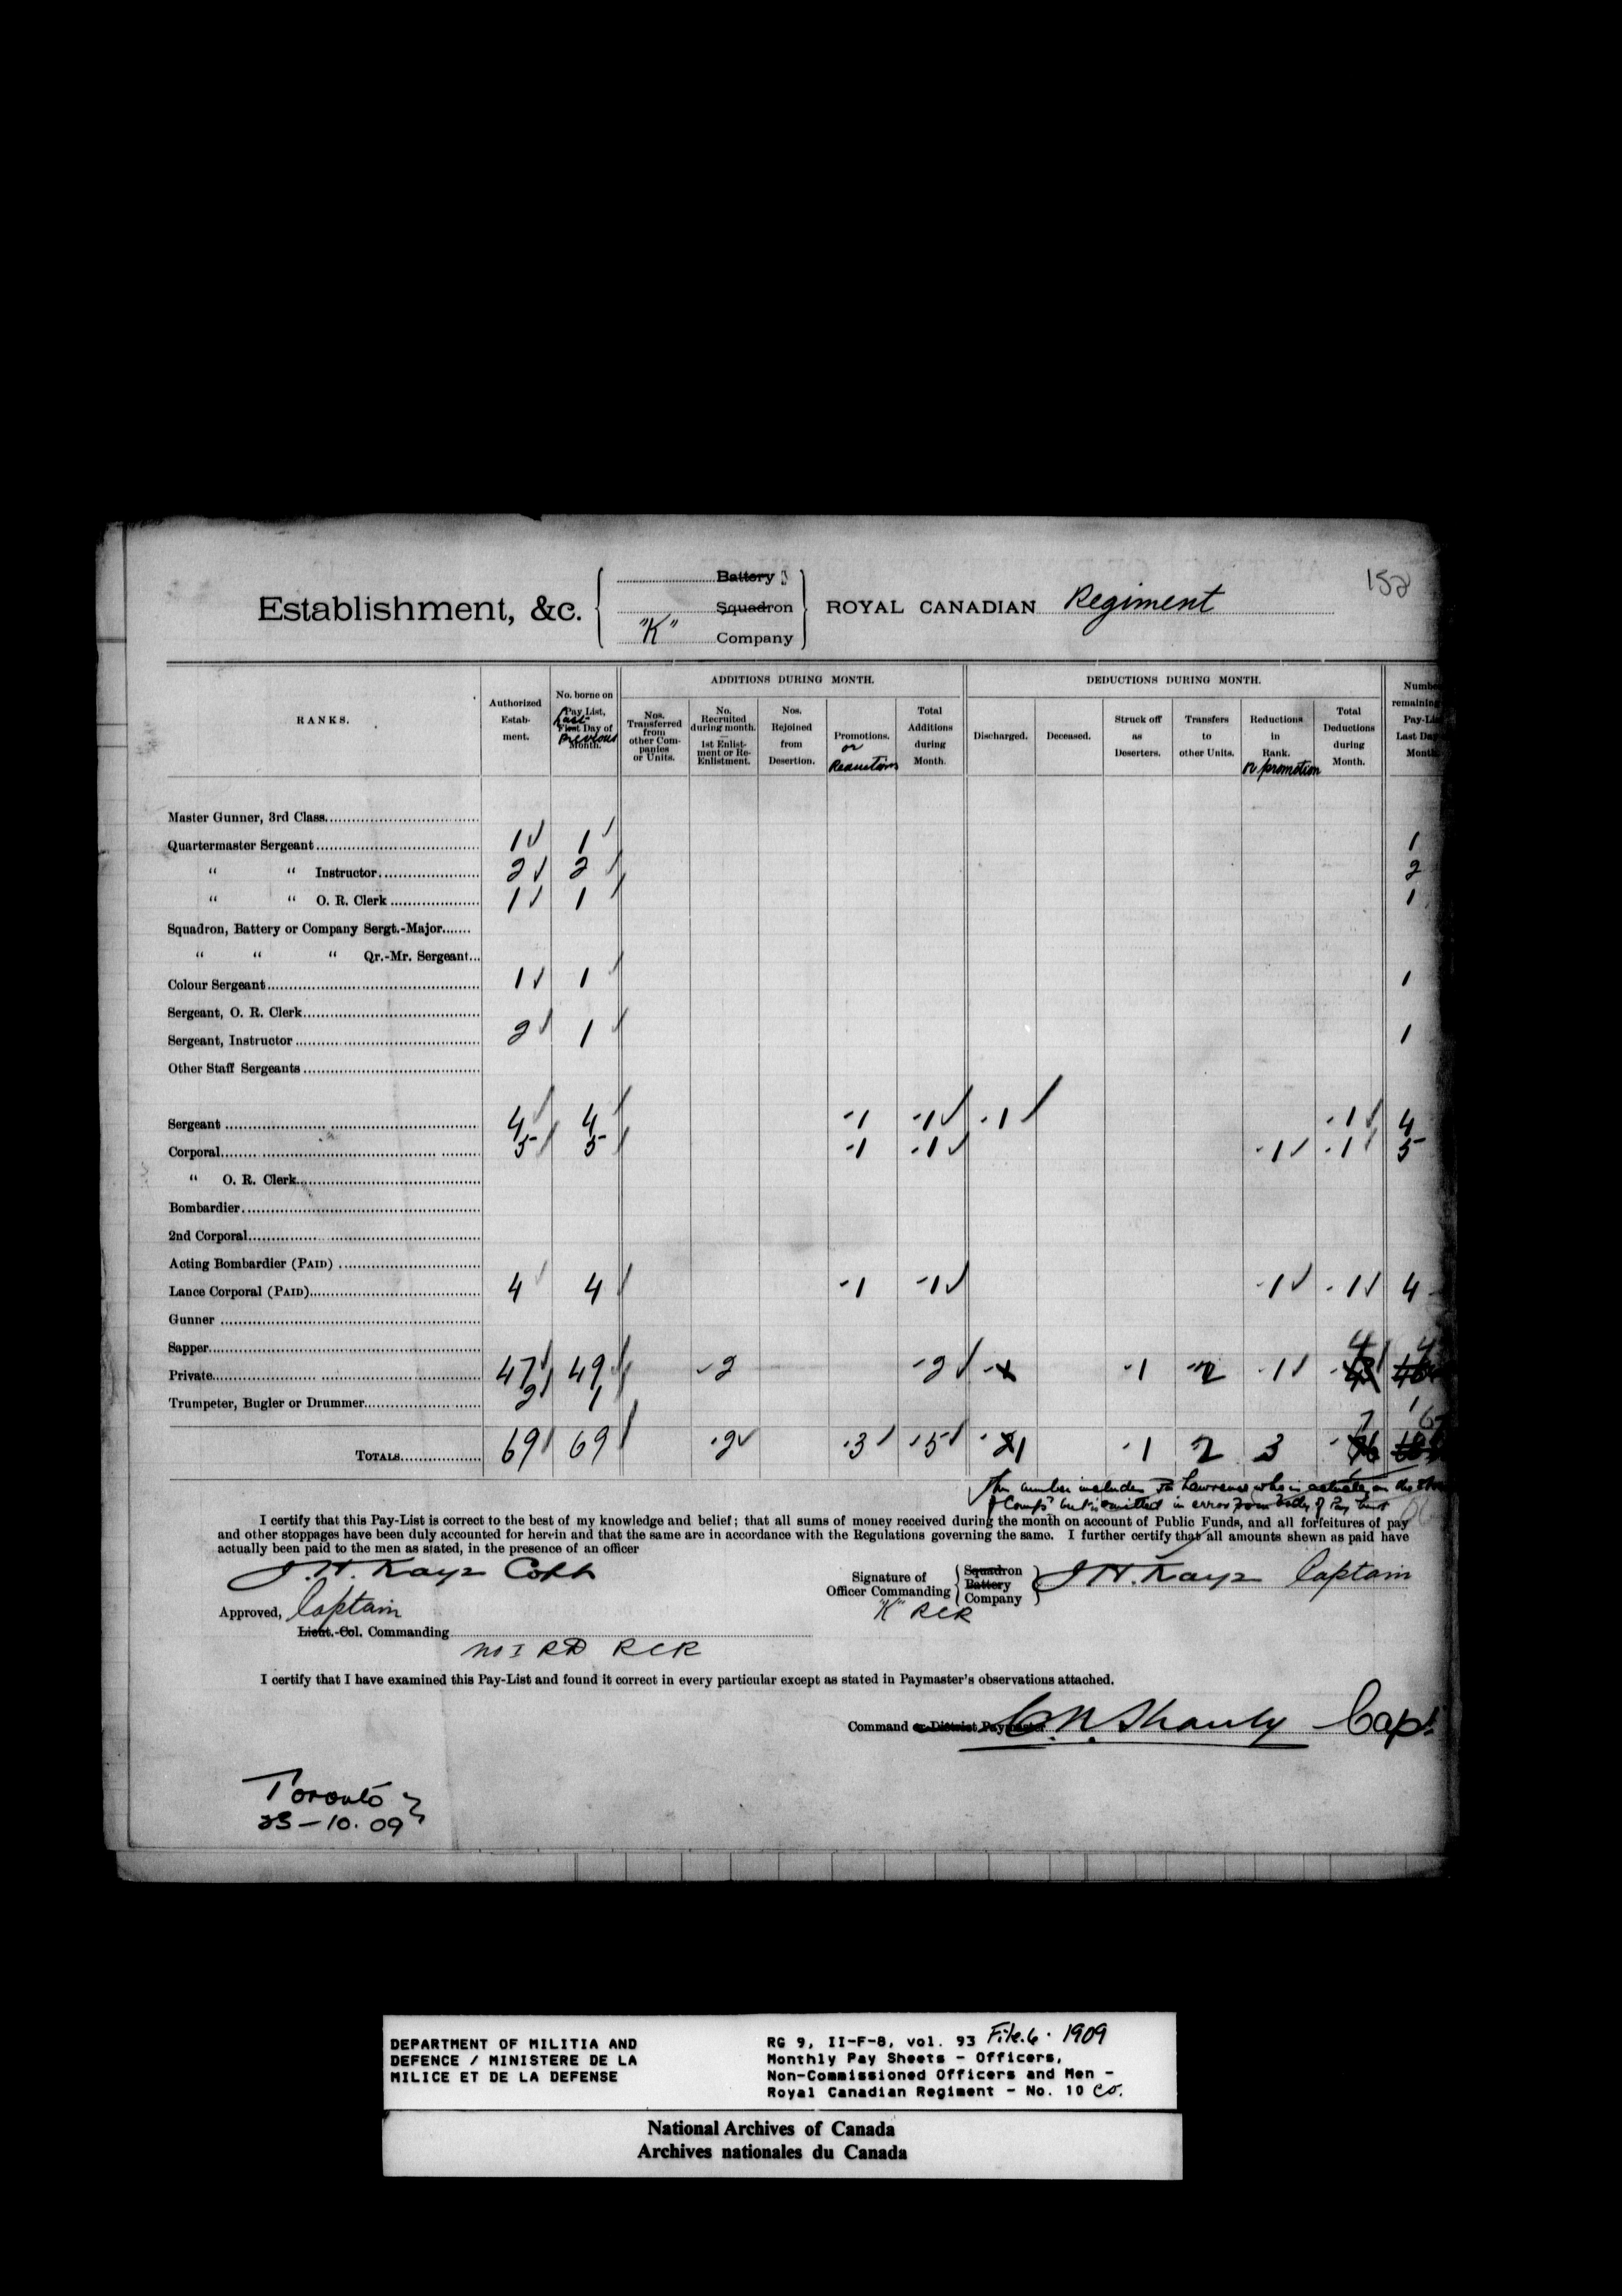 152
Establishment, &c.
Battery
Squadron
"K" Company
ROYAL CANADIAN Regiment
RANKS.
Authorized Estab- ment.
No. borne on Pay List, Last First Day of Previous Month.
ADDITIONS DURING MONTH.
Nos. Transferred from other Com- panies or Units.
No. Recruited during month. — 1st Enlist- ment or Re- Enlistment.
Nos. Rejoined from Desertion.
Promotions. or Reductions
Total Additions during Month.
DEDUCTIONS DURING MONTH.
Discharged.
Deceased.
Struck off as Deserters.
Transfers to other Units.
Reductions in Rank. or promotion
Total Deductions during Month.
remaining
Last Day
Master Gunner, 3rd Class
Quartermaster Sergeant 1 1 1
" " Instructor 2 2 2
" " O. R. Clerk 1 1 1
Squadron, Battery or Company Sergt.-Major
" " " Qr.-Mr. Sergeant
Colour Sergeant 1 1 1
Sergeant, O. R. Clerk
Sergeant, Instructor 2 1 1
Other Staff Sergeants
Sergeant 4 4 -1 -1 -1 -1 4
Corporal 5 5 -1 -1 -1 -1 5
" O. R. Clerk
Bombardier
2nd Corporal
Acting Bombardier (PAID)
Lance Corporal (PAID) 4 4 -1 -1 -1 -1 4
Gunner
Sapper
Private 47 49 -2 -2 -1 -2 -1 4
Trumpeter, Bugler or Drummer 2 1 1
TOTALS 69 69 -2 -3 -5 1 -1 2 3 7
number includes Lawrence who is actually on the
of Comp'y but omitted in error from body of Pay
I certify that this Pay-List is correct to the best of my knowledge and belief; that all sums of money received during the month on account of Public Funds, and all forfeitures of pay
and other stoppages have been duly accounted for herein and that the same are in accordance with the Regulations governing the same. I further certify that all amounts shewn as paid have
actually been paid to the men as stated, in the presence of an officer
J. H. Kaye
Signature of Officer Commanding
Squadron
Battery
Company
J H. Kaye Captain
"K" RCR
Approved, Captain
Lieut.-Col. Commanding
No I RD RCR
I certify that I have examined this Pay-List and found it correct in every particular except as stated in Paymaster's observations attached.
Command or District Paymaster C. N. Shanly Capt.
Toronto
23-10.09
DEPARTMENT OF MILITIA AND
DEFENCE / MINISTERE DE LA
MILICE ET DE LA DEFENSE
RG 9, II-F-8, vol. 93 File.6. 1909
Monthly Pay Sheets - Officers,
Non-Commissioned Officers and Men -
Royal Canadian Regiment - No. 10 Co.
National Archives of Canada
Archives nationales du Canada